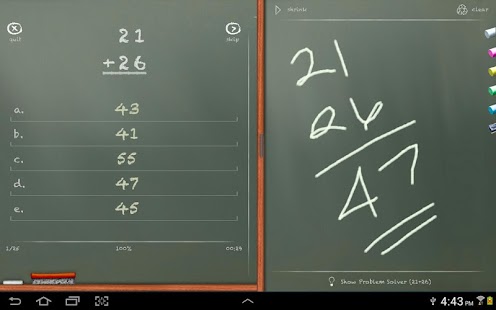 quit
skip
21
+26
a. 43
b. 41
c. 55
d. 47
e. 45
100%
shrink
clear
21
26
47
Show Problem Solver (21+26)
4:43 PM